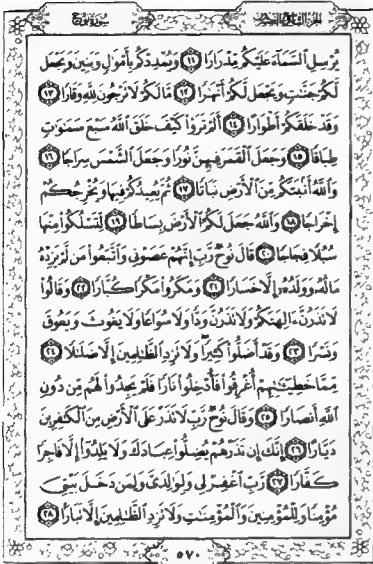 الجزء التاسع والعشرون سورة نوح
يُرْسِلِ ٱلسَّمَآءَ عَلَيْكُم مِّدْرَارًا ١١ وَيُمْدِدْكُم بِأَمْوَٰلٍ وَبَنِينَ وَيَجْعَل
لَّكُمْ جَنَّٰتٍ وَيَجْعَل لَّكُمْ أَنْهَٰرًا ١٢ مَّا لَكُمْ لَا تَرْجُونَ لِلَّهِ وَقَارًا ١٣
وَقَدْ خَلَقَكُمْ أَطْوَارًا ١٤ أَلَمْ تَرَوْا۟ كَيْفَ خَلَقَ ٱللَّهُ سَبْعَ سَمَٰوَٰتٍ
طِبَاقًا ١٥ وَجَعَلَ ٱلْقَمَرَ فِيهِنَّ نُورًا وَجَعَلَ ٱلشَّمْسَ سِرَاجًا ١٦
وَٱللَّهُ أَنۢبَتَكُم مِّنَ ٱلْأَرْضِ نَبَاتًا ١٧ ثُمَّ يُعِيدُكُمْ فِيهَا وَيُخْرِجُكُمْ
إِخْرَاجًا ١٨ وَٱللَّهُ جَعَلَ لَكُمُ ٱلْأَرْضَ بِسَاطًا ١٩ لِّتَسْلُكُوا۟ مِنْهَا
سُبُلًا فِجَاجًا ٢٠ قَالَ نُوحٌ رَّبِّ إِنَّهُمْ عَصَوْنِى وَٱتَّبَعُوا۟ مَن لَّمْ يَزِدْهُ
مَالُهُۥ وَوَلَدُهُۥٓ إِلَّا خَسَارًا ٢١ وَمَكَرُوا۟ مَكْرًا كُبَّارًا ٢٢ وَقَالُوا۟
لَا تَذَرُنَّ ءَالِهَتَكُمْ وَلَا تَذَرُنَّ وَدًّا وَلَا سُوَاعًا وَلَا يَغُوثَ وَيَعُوقَ
وَنَسْرًا ٢٣ وَقَدْ أَضَلُّوا۟ كَثِيرًا وَلَا تَزِدِ ٱلظَّٰلِمِينَ إِلَّا ضَلَٰلًا ٢٤
مِّمَّا خَطِيٓـَٰٔتِهِمْ أُغْرِقُوا۟ فَأُدْخِلُوا۟ نَارًا فَلَمْ يَجِدُوا۟ لَهُم مِّن دُونِ
ٱللَّهِ أَنصَارًا ٢٥ وَقَالَ نُوحٌ رَّبِّ لَا تَذَرْ عَلَى ٱلْأَرْضِ مِنَ ٱلْكَٰفِرِينَ
دَيَّارًا ٢٦ إِنَّكَ إِن تَذَرْهُمْ يُضِلُّوا۟ عِبَادَكَ وَلَا يَلِدُوٓا۟ إِلَّا فَاجِرًا
كَفَّارًا ٢٧ رَّبِّ ٱغْفِرْ لِى وَلِوَٰلِدَىَّ وَلِمَن دَخَلَ بَيْتِىَ
مُؤْمِنًا وَلِلْمُؤْمِنِينَ وَٱلْمُؤْمِنَٰتِ وَلَا تَزِدِ ٱلظَّٰلِمِينَ إِلَّا تَبَارًۢا ٢٨
٥٧٠